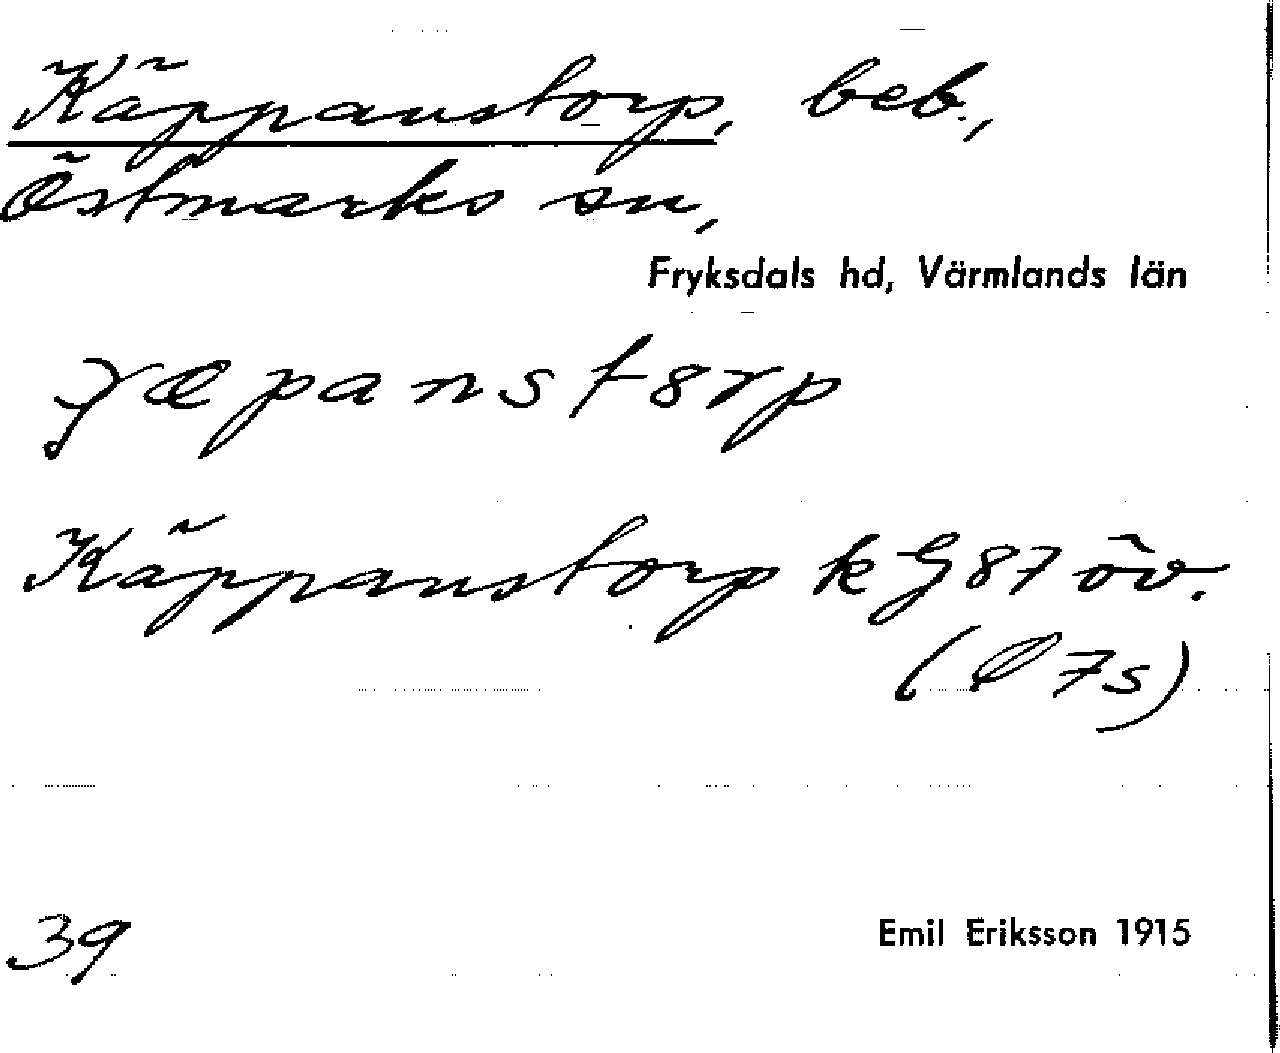 Käppanstorp, beb.,
Östmarks sn,
Fryksdals hd, Värmlands län
ɣæpanstɞrp
Käppanstorp k G 87 öv.
(l 7s)
39
Emil Eriksson 1915